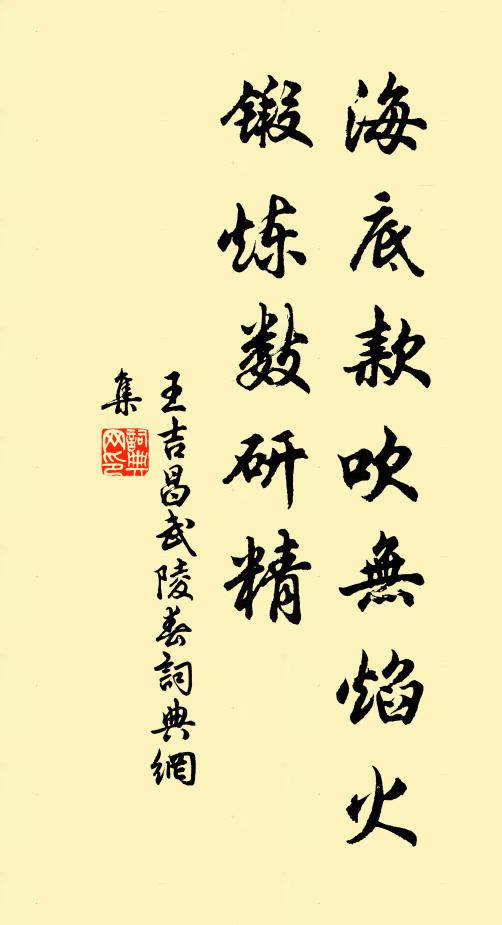 海底款吹無焰火
鍛炼数研精
王吉昌武陵春詞典網
集
詞典
网印